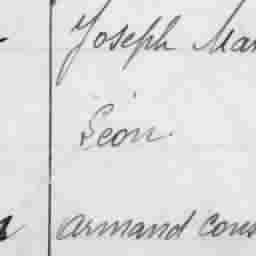 Joseph Mar
Léon
Armand Cons